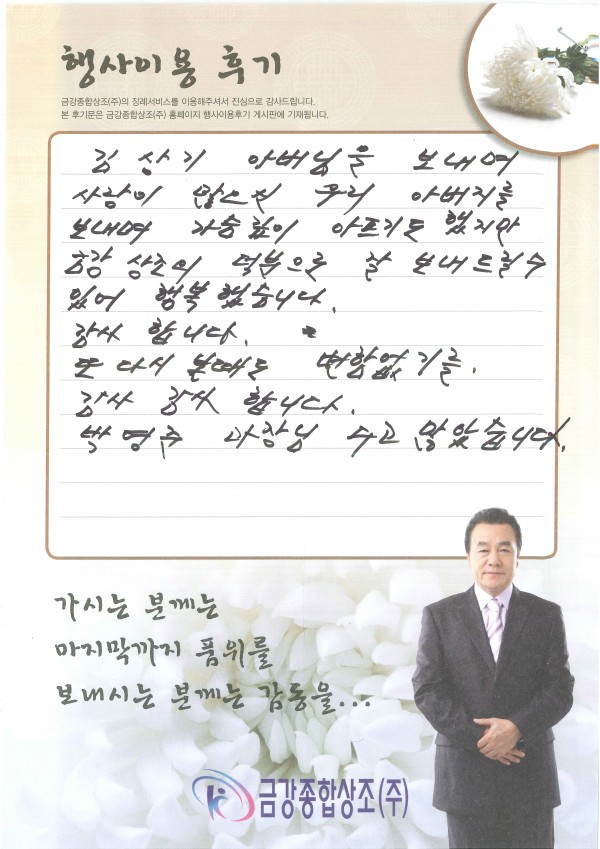 행사이용 후기
금강종합상조(주)의 장례서비스를 이용해주셔서 진심으로 감사드립니다.
본 후기문은 금강종합상조(주) 홈페이지 행사이용후기 게시판에 기재됩니다.
김 상기 아버님을 보내며
사랑이 많으신 우리 아버지를
보내며 가슴 아프기도 했지만
금강 상조의 덕분으로 잘 보내드릴수
있어 행복했습니다.
감사 합니다.
또 다시 볼때도 변함없기를.
감사 감사 합니다.
박영주 과장님 수고 많았습니다.
가시는 분께는
마지막까지 품위를
보내시는 분께는 감동을...
금강종합상조(주)